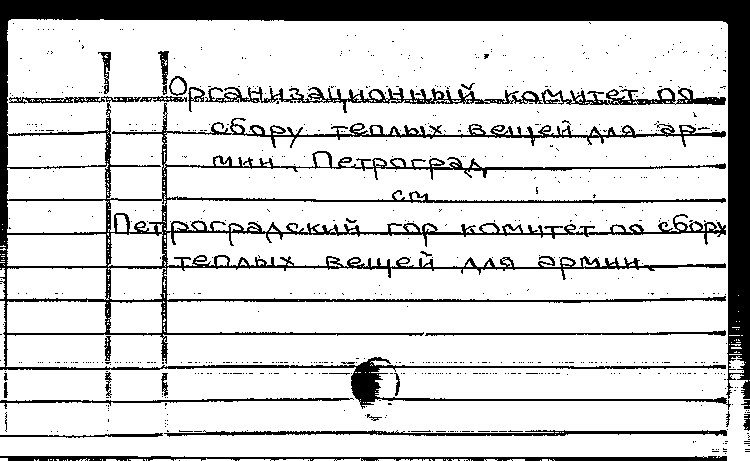 Организационный комитет по
сбору теплых вещей для ар-
мии, Петроград
см
Петроградский гор комитет по сбору
теплых вещей для армии.